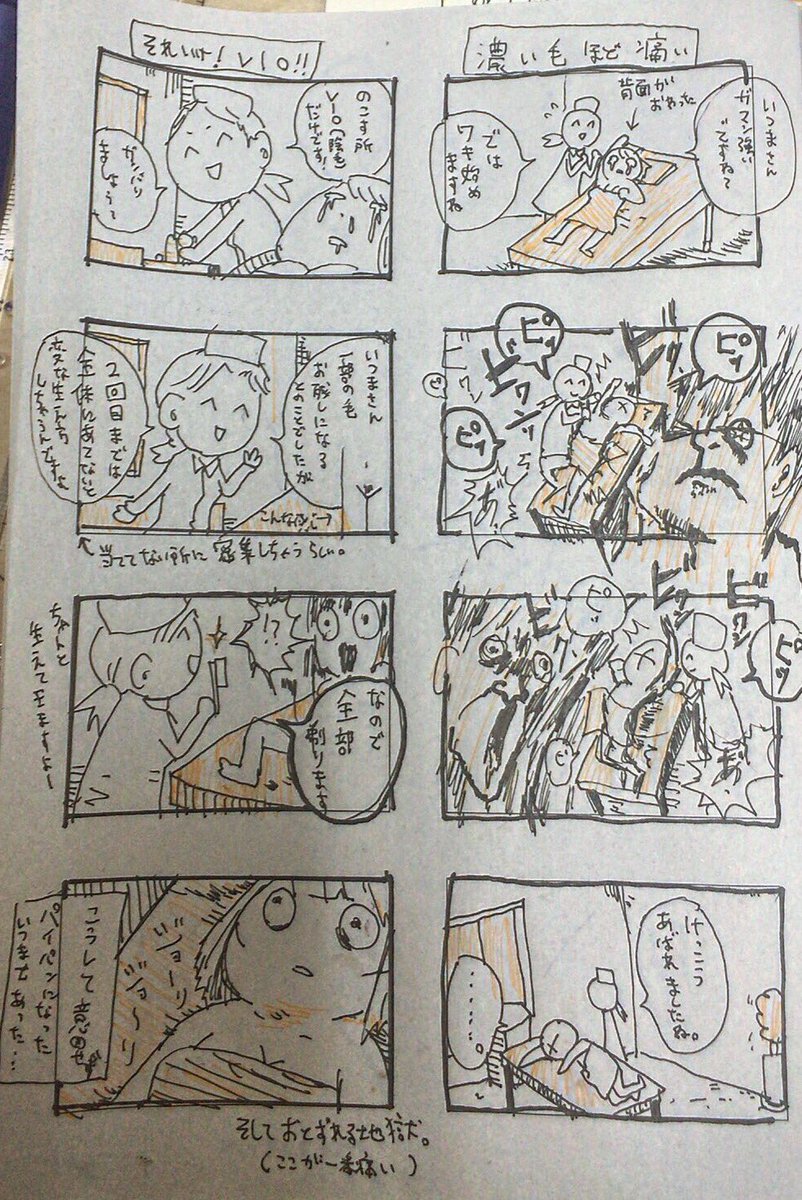 濃い毛ほど痛い
いつまさん
ガマン強い
ですね〜
背面が
おわった
では
ワキ始め
ますね
ピッ
ピッ
ピッ
ピッ
ビクン
ビクン
あ゛っ
ピッ
ピッ
ビクン
ビクン
けっこう
あばれましたね。
………。
それいけ!VIO!!
のこす所
VIO(陰毛)
だけです!
がんばり
ましょう〜
いつまさん
一部の毛
お残しになる
とのことでしたが
2回目までは
全体にあてないと
変な生え方
しちゃうんですよ
こんな感じ→
↑当ててない所に密集しちゃうらしい。
!?
なので
全部
剃ります
ちゃんと
生えてきますよー
ジョーリ
ジョ〜リ
こうして意図せず
パイパンになった
いつまであった…
そしておとずれる地獄。
(ここが一番痛い)